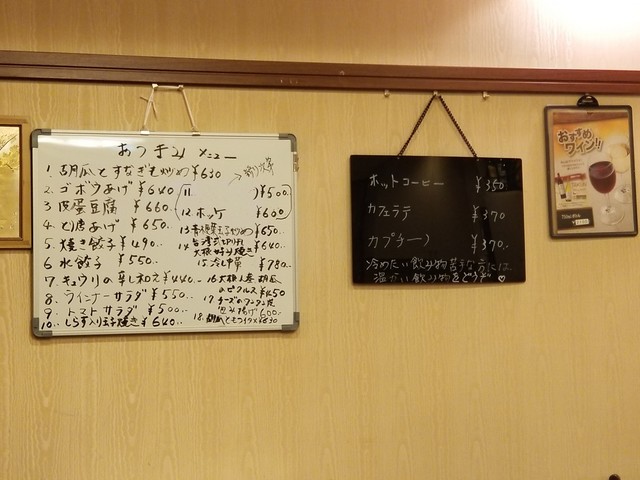 メニュー
1. 胡瓜とすなぎも炒め ¥630
2. ゴボウあげ ¥640
3. 皮蛋豆腐 ¥660
4. 唐あげ ¥650
5. 焼き餃子 ¥490
6. 水餃子 ¥550
7. キュウリの辛し和え ¥440
8. ウインナーサラダ ¥550
9. トマトサラダ ¥500
10. しらす入り玉子焼き ¥640
11. ¥500
12. ホッケ ¥600
¥650
14 台湾式切干し
大根玉子焼き ¥640
15 冷し中華 ¥780
のピクルス ¥450
17 チーズのワンタン
包み揚げ 600
18. ¥630
ホットコーヒー ¥350
カフェラテ ¥370
カプチーノ ¥370
冷めたい飲み物苦手な方には
温かい飲み物をどうぞ♡
おすすめ
ワイン!!